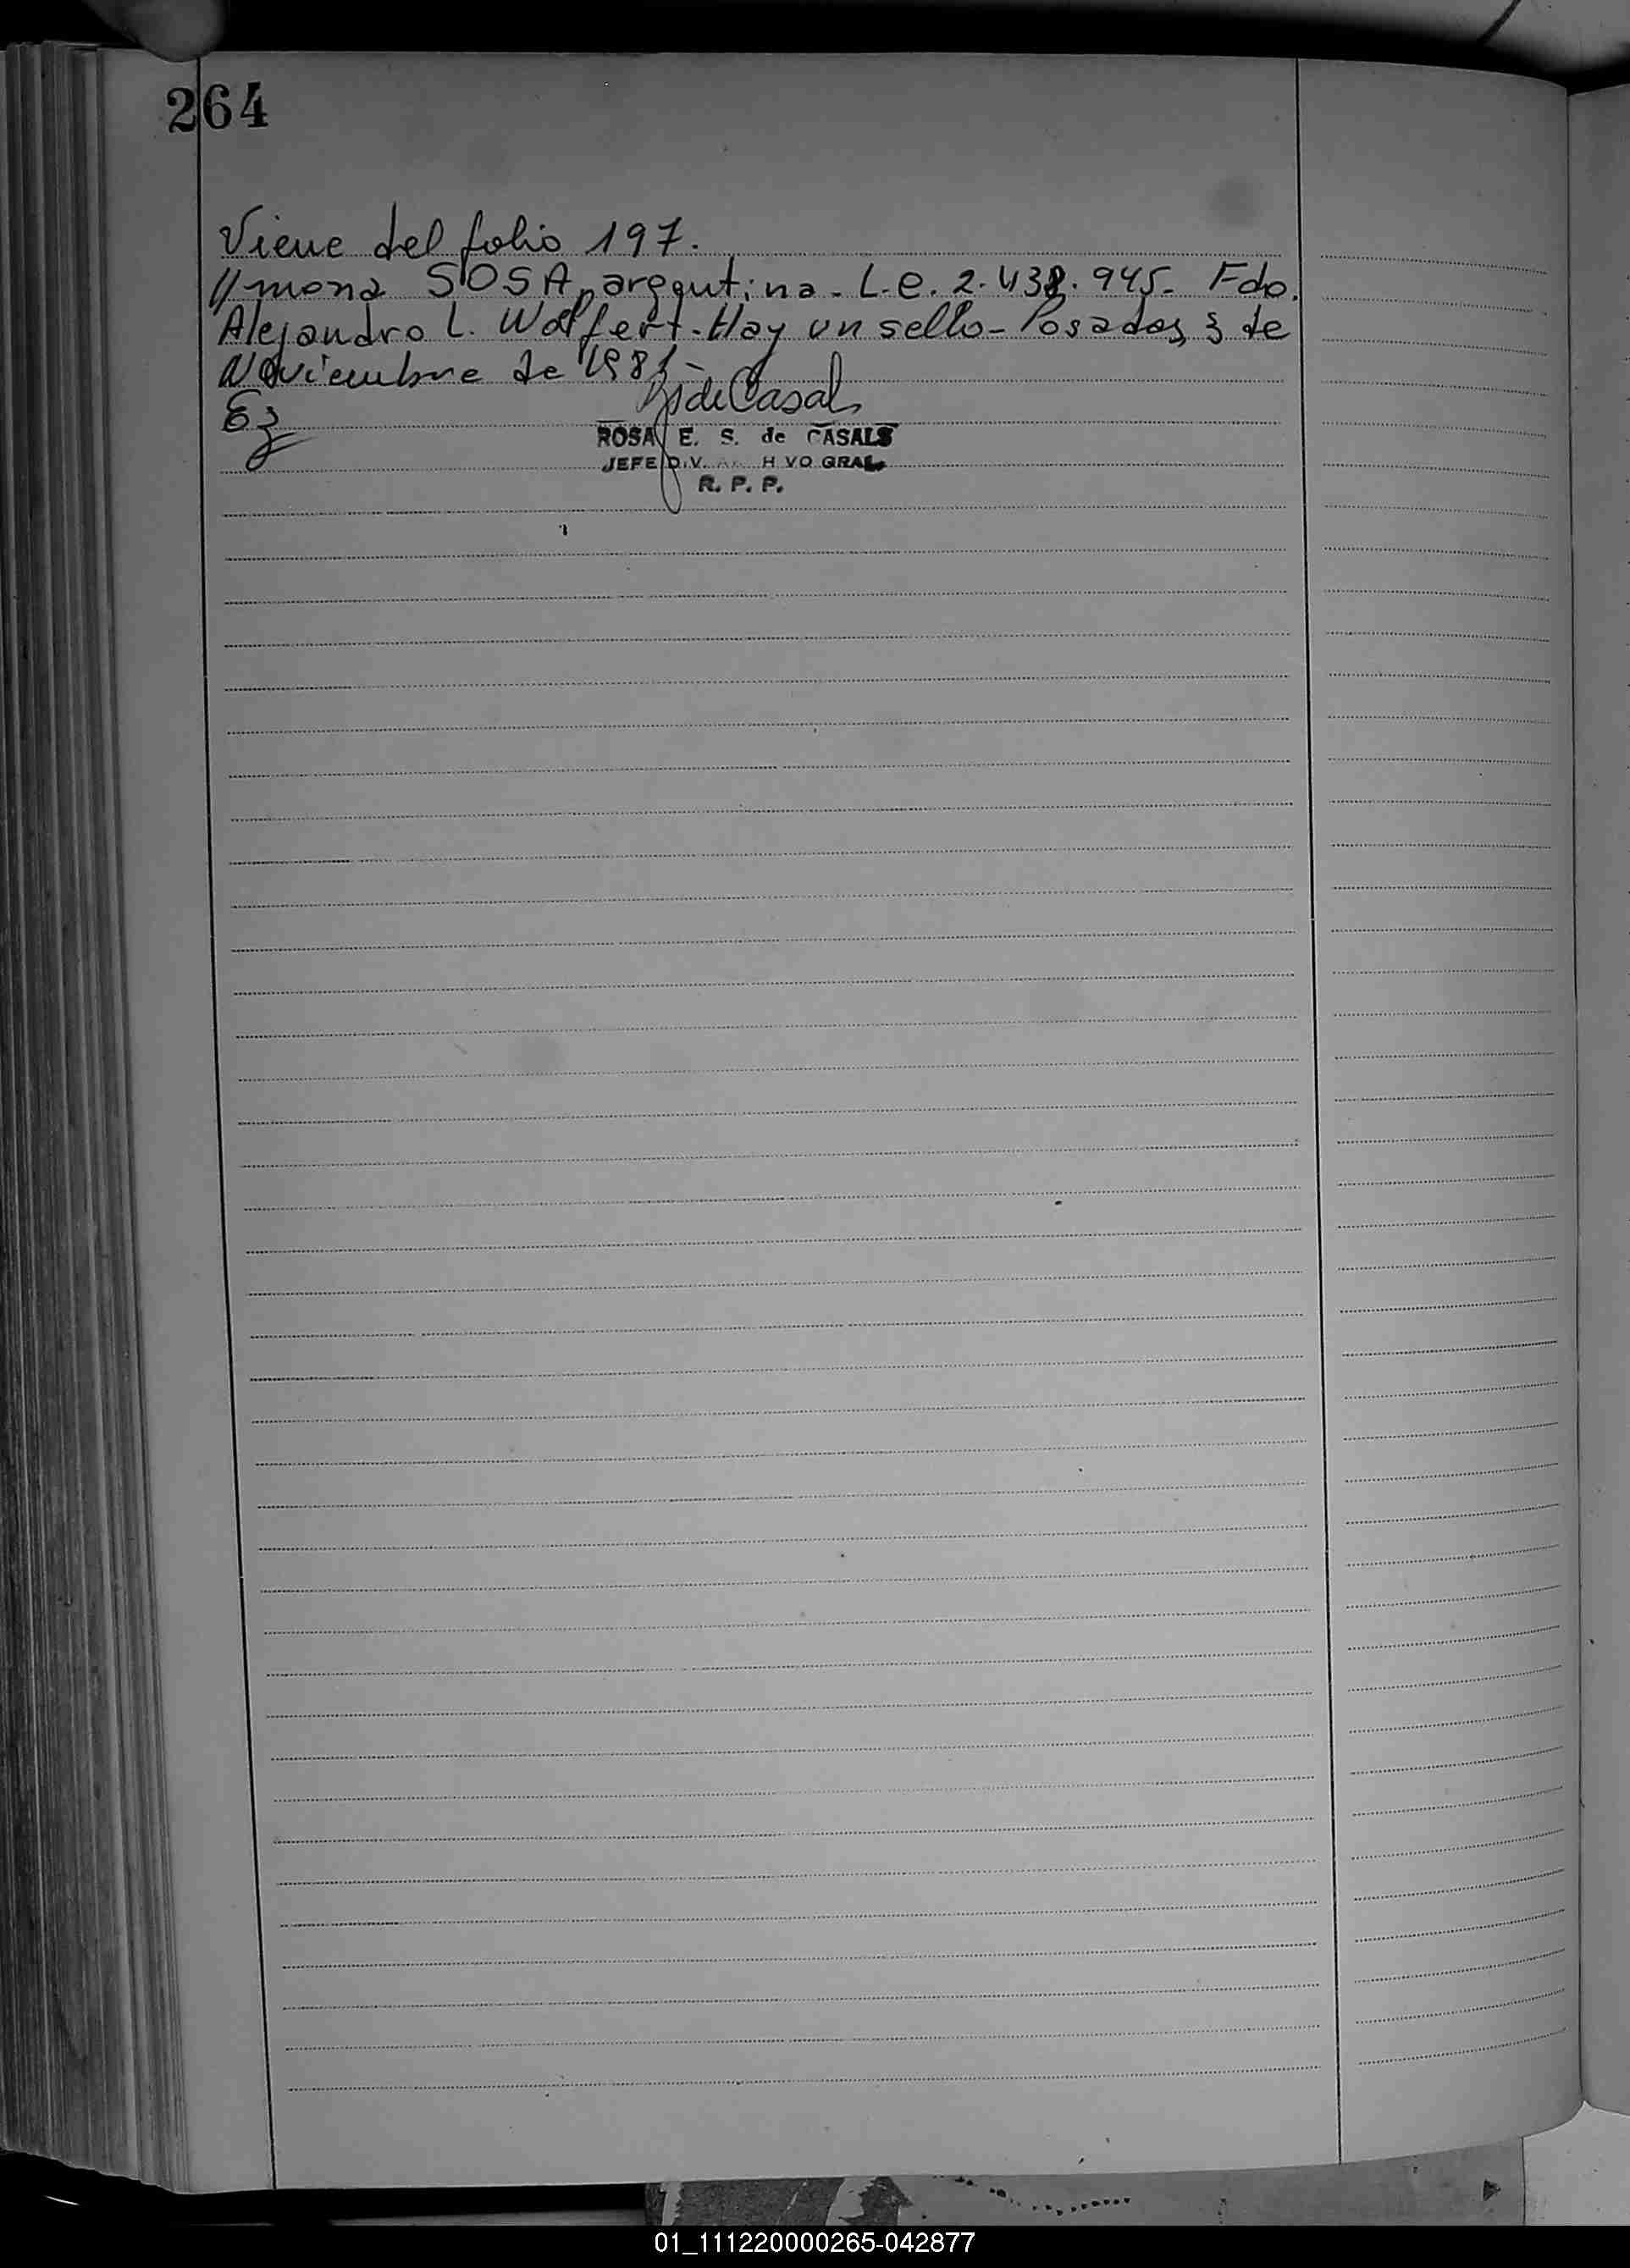 264
Viene del folio 197.
//mona SOSA, argentina. L.e. 2.438.945. Fdo.
Alejandro L. Wolfert. Hay un sello - Posadas, 3 de
Noviembre de 1981 -
Ez
ROSA E. S. de CASALS
JEFE DIV. A H VO GRAL.
R. P. P.
01_111220000265-042877